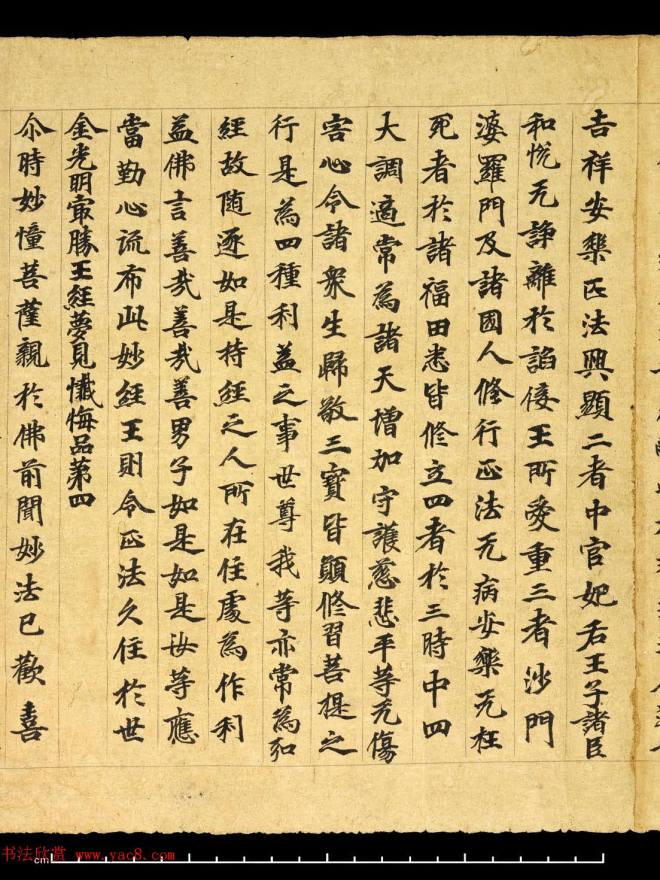 吉祥安樂正法興顯二者中官妃后王子諸臣
和悅无諍離於諂佞王所愛重三者沙門
婆羅門及諸國人修行正法无病安樂无枉
死者於諸福田悉皆修立四者於三時中四
大調適常為諸天增加守護慈悲平等无傷
害心令諸衆生歸敬三寶皆願修習菩提之
行是為四種利益之事世尊我等亦常為弘
經故隨逐如是持經之人所在住處為作利
益佛言善哉善哉善男子如是如是汝等應
當勤心流布此妙經王則令正法久住於世
金光明最勝王經夢見懺悔品第四
尒時妙幢菩薩親於佛前聞妙法已歡喜
书法欣赏 www.yac8.com
cm